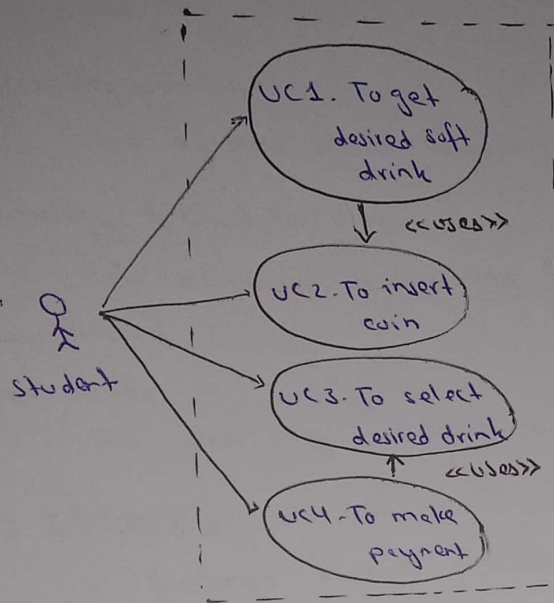 UC1. To get
desired soft
drink
<<uses>>
UC2. To insert
coin
student
UC3. To select
desired drink
<<uses>>
UC4. To make
payment